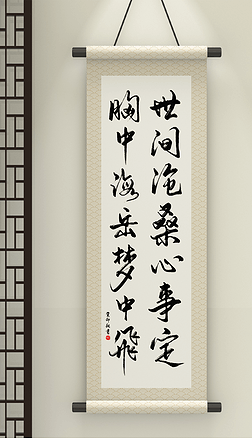 世间沧桑心事定
胸中海岳梦中飛